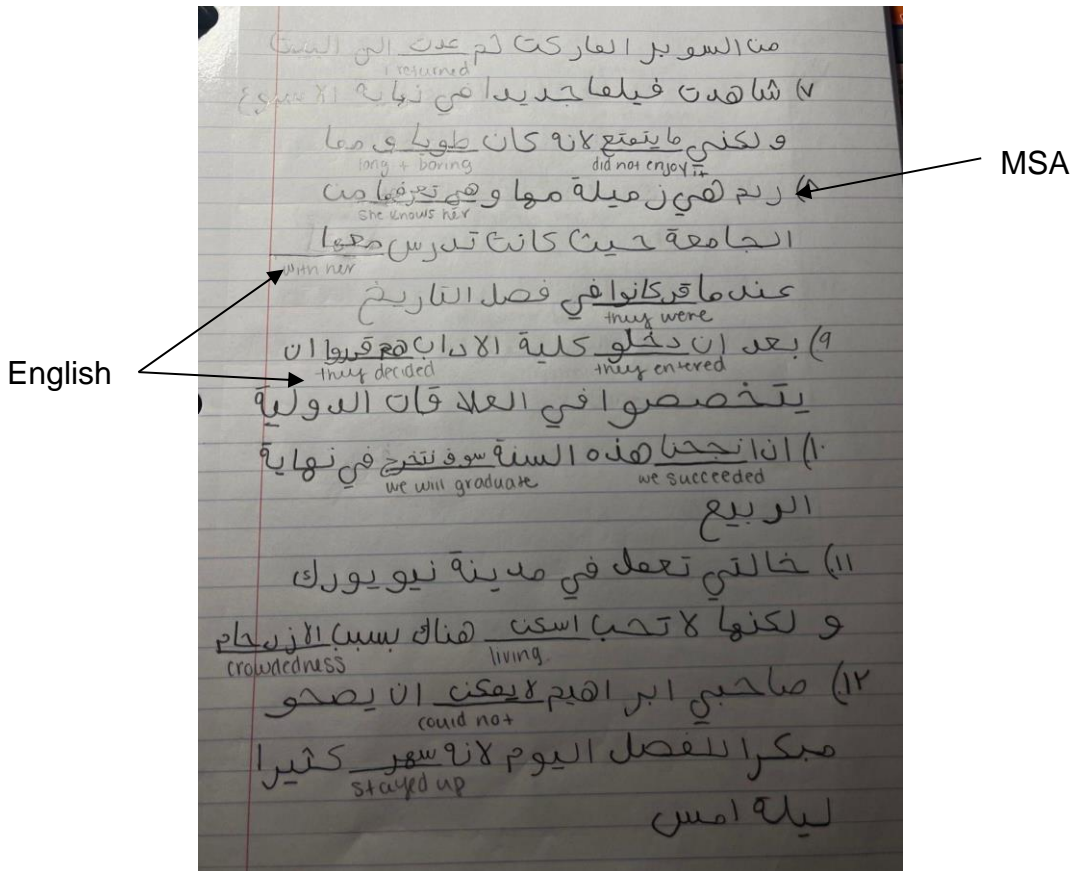 من السوبر الماركت ثم عدت الى البيت
I returned
٧) شاهدت فيلما جديدا في نهاية الاسبوع
و لكني ما يتمتع لانه كان طويل و مما
long + boring did not enjoy it
MSA
٨) ريم هي زميلة مها و هي تعرفها من
she knows her
الجامعة حيث كانت تدرس معها
with her
عندما كانوا في فصل التاريخ
they were
English
٩) بعد ان دخلو كلية الاداب هم قرروا ان
they decided they entered
يتخصصوا في العلاقات الدولية
١٠) اذا نجحنا هذه السنة سوف نتخرج في نهاية
we will graduate we succeeded
الربيع
١١) خالتي تعمل في مدينة نيويورك
و لكنها لا تحب اسكن هناك بسبب الازدحام
crowdedness living
١٢) صاحبي ابراهيم لا يمكن ان يصحو
could not
مبكرا للفصل اليوم لانه سهر كثيرا
stayed up
ليلة امس